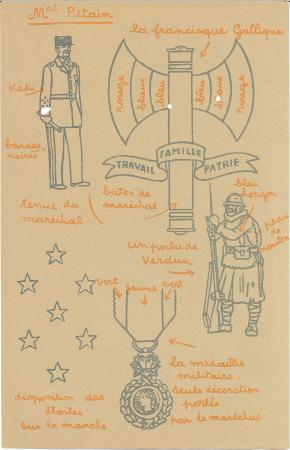 Mal Pétain
la francisque Gallique
Kaki
rouge
blanc
bleu
bleu
blanc
rouge
bandes
noires
TRAVAIL FAMILLE PATRIE
baton de
maréchal
tenue du
maréchal
bleu
horizon
peau
de
mouton
un poilu de
Verdun
vert jaune vert
la médaille
militaire,
seule décoration
portée
par le maréchal
disposition des
étoiles
sur le manche